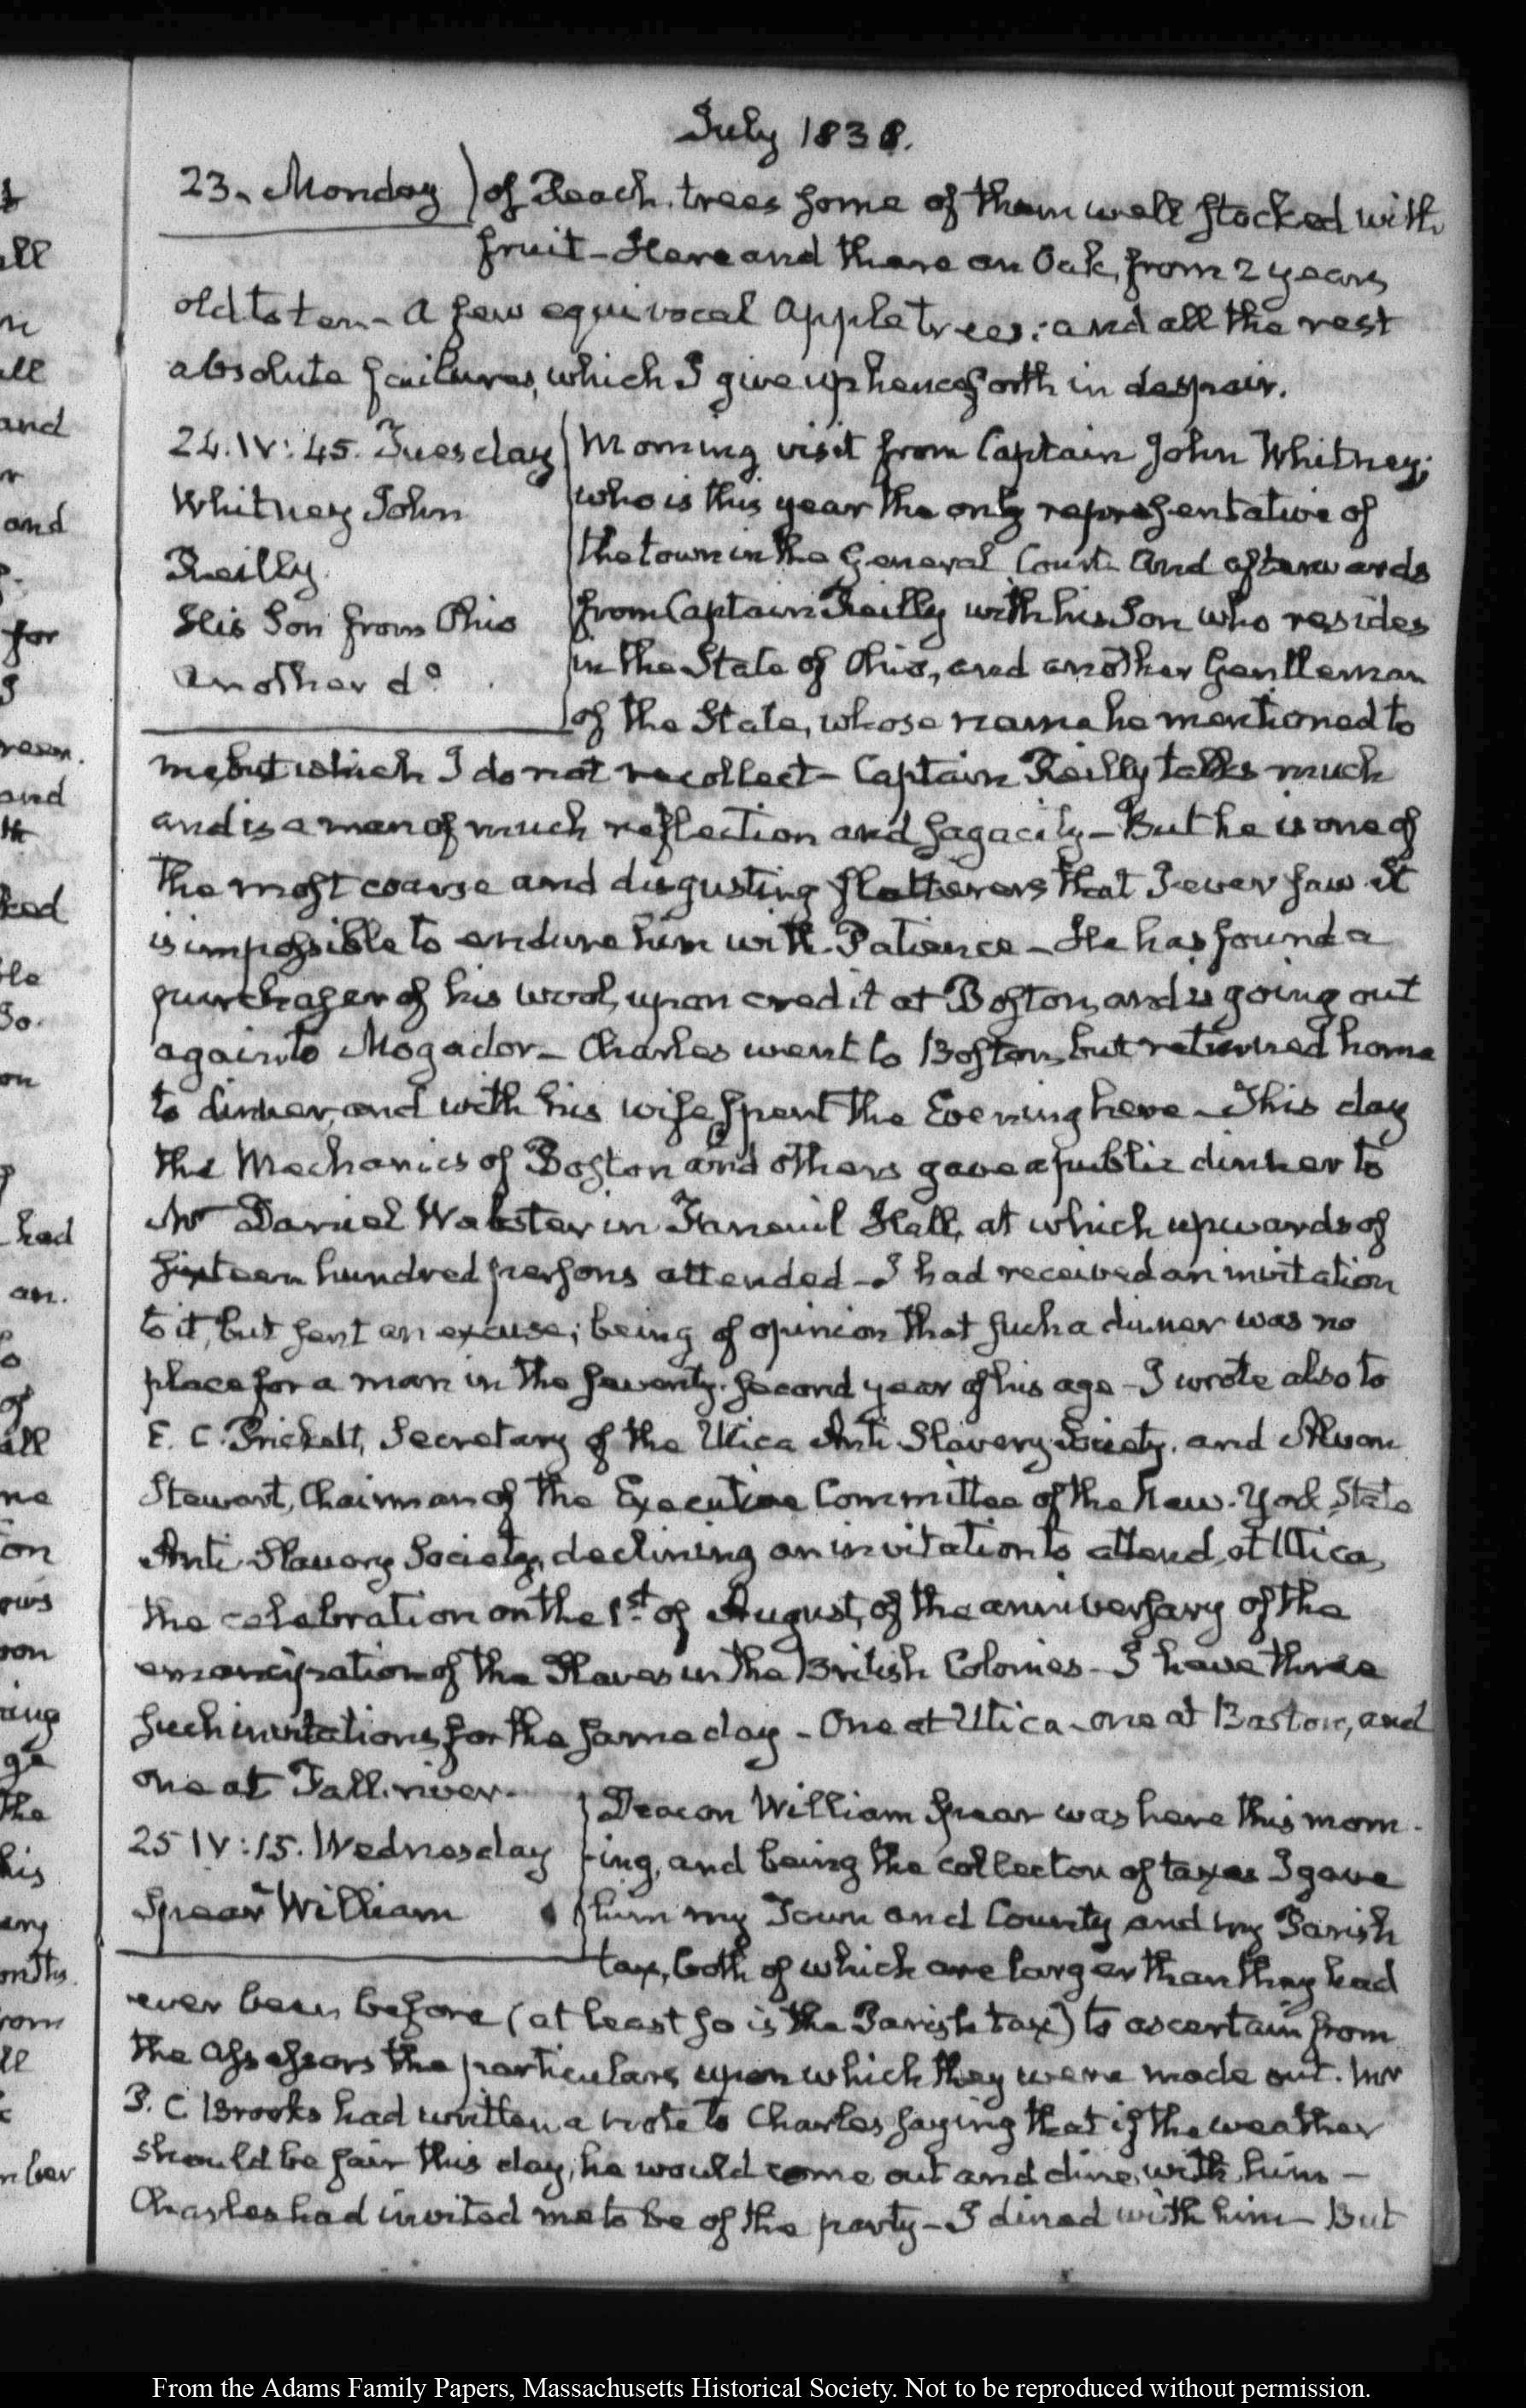 July 1838.
23. Monday ) of Peach-trees some of them well stocked with
fruit – Here and there an Oak, from 2 years
old to ten – A few equivocal Apple trees; and all the rest
absolute failures, which I give up henceforth in despair.
24. IV: 45. Tuesday
Whitney John
Reilly
His Son from Ohio
another do.
Morning visit from Captain John Whitney;
who is this year the only representative of
the town in the General Court. And afterwards
from Captain Reilly with his Son who resides
in the State of Ohio, and another Gentleman
of the State, whose name he mentioned to
me, but which I do not recollect – Captain Reilly talks much
and is a man of much reflection and sagacity – But he is one of
the most coarse and disgusting flatterers that I ever saw. It
is impossible to endure him with Patience – He has found a
purchaser of his wool, upon credit at Boston, and is going out
again to Mogador – Charles went to Boston, but returned home
to dinner, and with his wife spent the Evening here – This day
the Mechanics of Boston and others gave a public dinner to
Mr Daniel Webster in Faneuil Hall, at which upwards of
sixteen hundred persons attended – I had received an invitation
to it, but sent an excuse; being of opinion that such a dinner was no
place for a man in the seventy-second year of his age – I wrote also to
E. C. Prickett, Secretary of the Utica Anti Slavery Society, and Alvan
Stewart, Chairman of the Executive Committee of the New-York State
Anti Slavery Society, declining an invitation to attend, at Utica,
the celebration on the 1st. of August, of the anniversary of the
emancipation of the Slaves in the British Colonies – I have three
such invitations for the same day – One at Utica – one at Boston, and
one at Fall-river.
25 IV: 15. Wednesday
Spear William
Deacon William Spear was here this morn-
-ing, and being the collector of taxes I gave
him my Town and County and my Parish
tax, both of which are larger than they had
ever been before (at least so is the Parish tax) to ascertain from
the Assessors the particulars upon which they were made out. Mr
P. C. Brooks had written a note to Charles saying that if the weather
should be fair this day, he would come out and dine with him –
Charles had invited me to be of the party – I dined with him – But
ll
and
for
and
had
an.
all
on
The
his
From the Adams Family Papers, Massachusetts Historical Society. Not to be reproduced without permission.